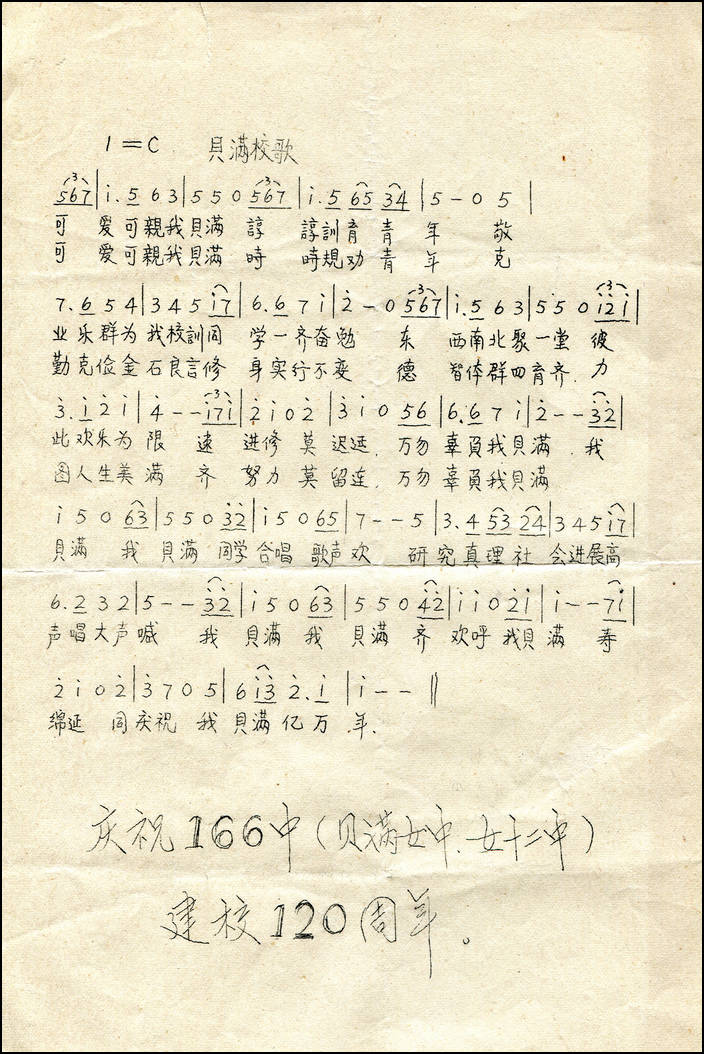 1=C 貝满校歌
5̲6̲7̲|i̇.5̲ 6 3|5 5 0 5̲6̲7̲|i̇.5̲ 6̲5̲ 3̲4̲|5-0 5|
可 爱可親我貝满 諄 諄訓育青 年 敬
可 爱可親我貝满 時 時規劝青 年 克
7.6̲ 5 4|3 4 5 i̲̇7̲|6.6̲ 7 i̇|2̇-0 5̲6̲7̲|i̇.5̲ 6 3|5 5 0 i̲̇2̲̇i̲̇|
业乐群为 我校訓同 学一齐奋勉 东 西南北聚一堂 彼
勤克俭金 石良言修 身实行不变 德 智体群四育齐. 力
3̇.i̲̇ 2̇ i̇|4̇--i̲̇7̲i̲̇|2̇ i̇ 0 2̇|3̇ i̇ 0 5̲6̲|6.6̲ 7 i̇|2̇--3̲̇2̲̇|
此欢乐为 限 速 进修 莫 迟延. 万勿 辜負我貝满. 我
图人生美 满 齐 努力 莫 留连. 万勿 辜負我貝满
i̇ 5 0 6̲3̲|5 5 0 3̲̇2̲̇|i̇ 5 0 6̲5̲|7--5|3.4̲ 5̲3̲ 2̲4̲|3 4 5 i̲̇7̲|
貝满 我 貝满 同学 合唱 歌声欢 研 究真理社 会进展高
6.2̲ 3 2|5--3̲̇2̲̇|i̇ 5 0 6̲3̲|5 5 0 4̲̇2̲̇|i̇ i̇ 0 2̲̇i̲̇|i̇--7̲i̲̇|
声唱大声喊 我 貝满 我 貝满 齐 欢呼 我貝 满 寿
2̇ i̇ 0 2̇|3̇ 7 0 5|6 i̲̇3̲̇ 2̇.i̲̇|i̇--‖
绵延 同庆祝 我 貝满亿万 年.
庆祝166中(贝满女中.女十二中)
建校120周年。